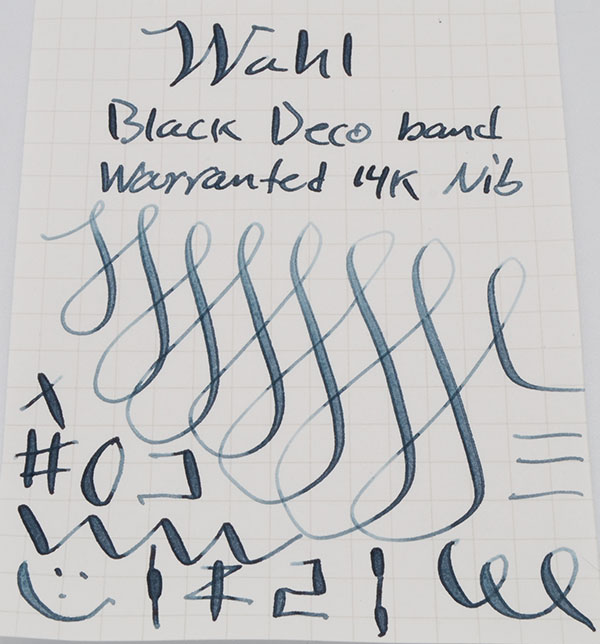 Wahl
Black Deco band
Warranted 14K Nib